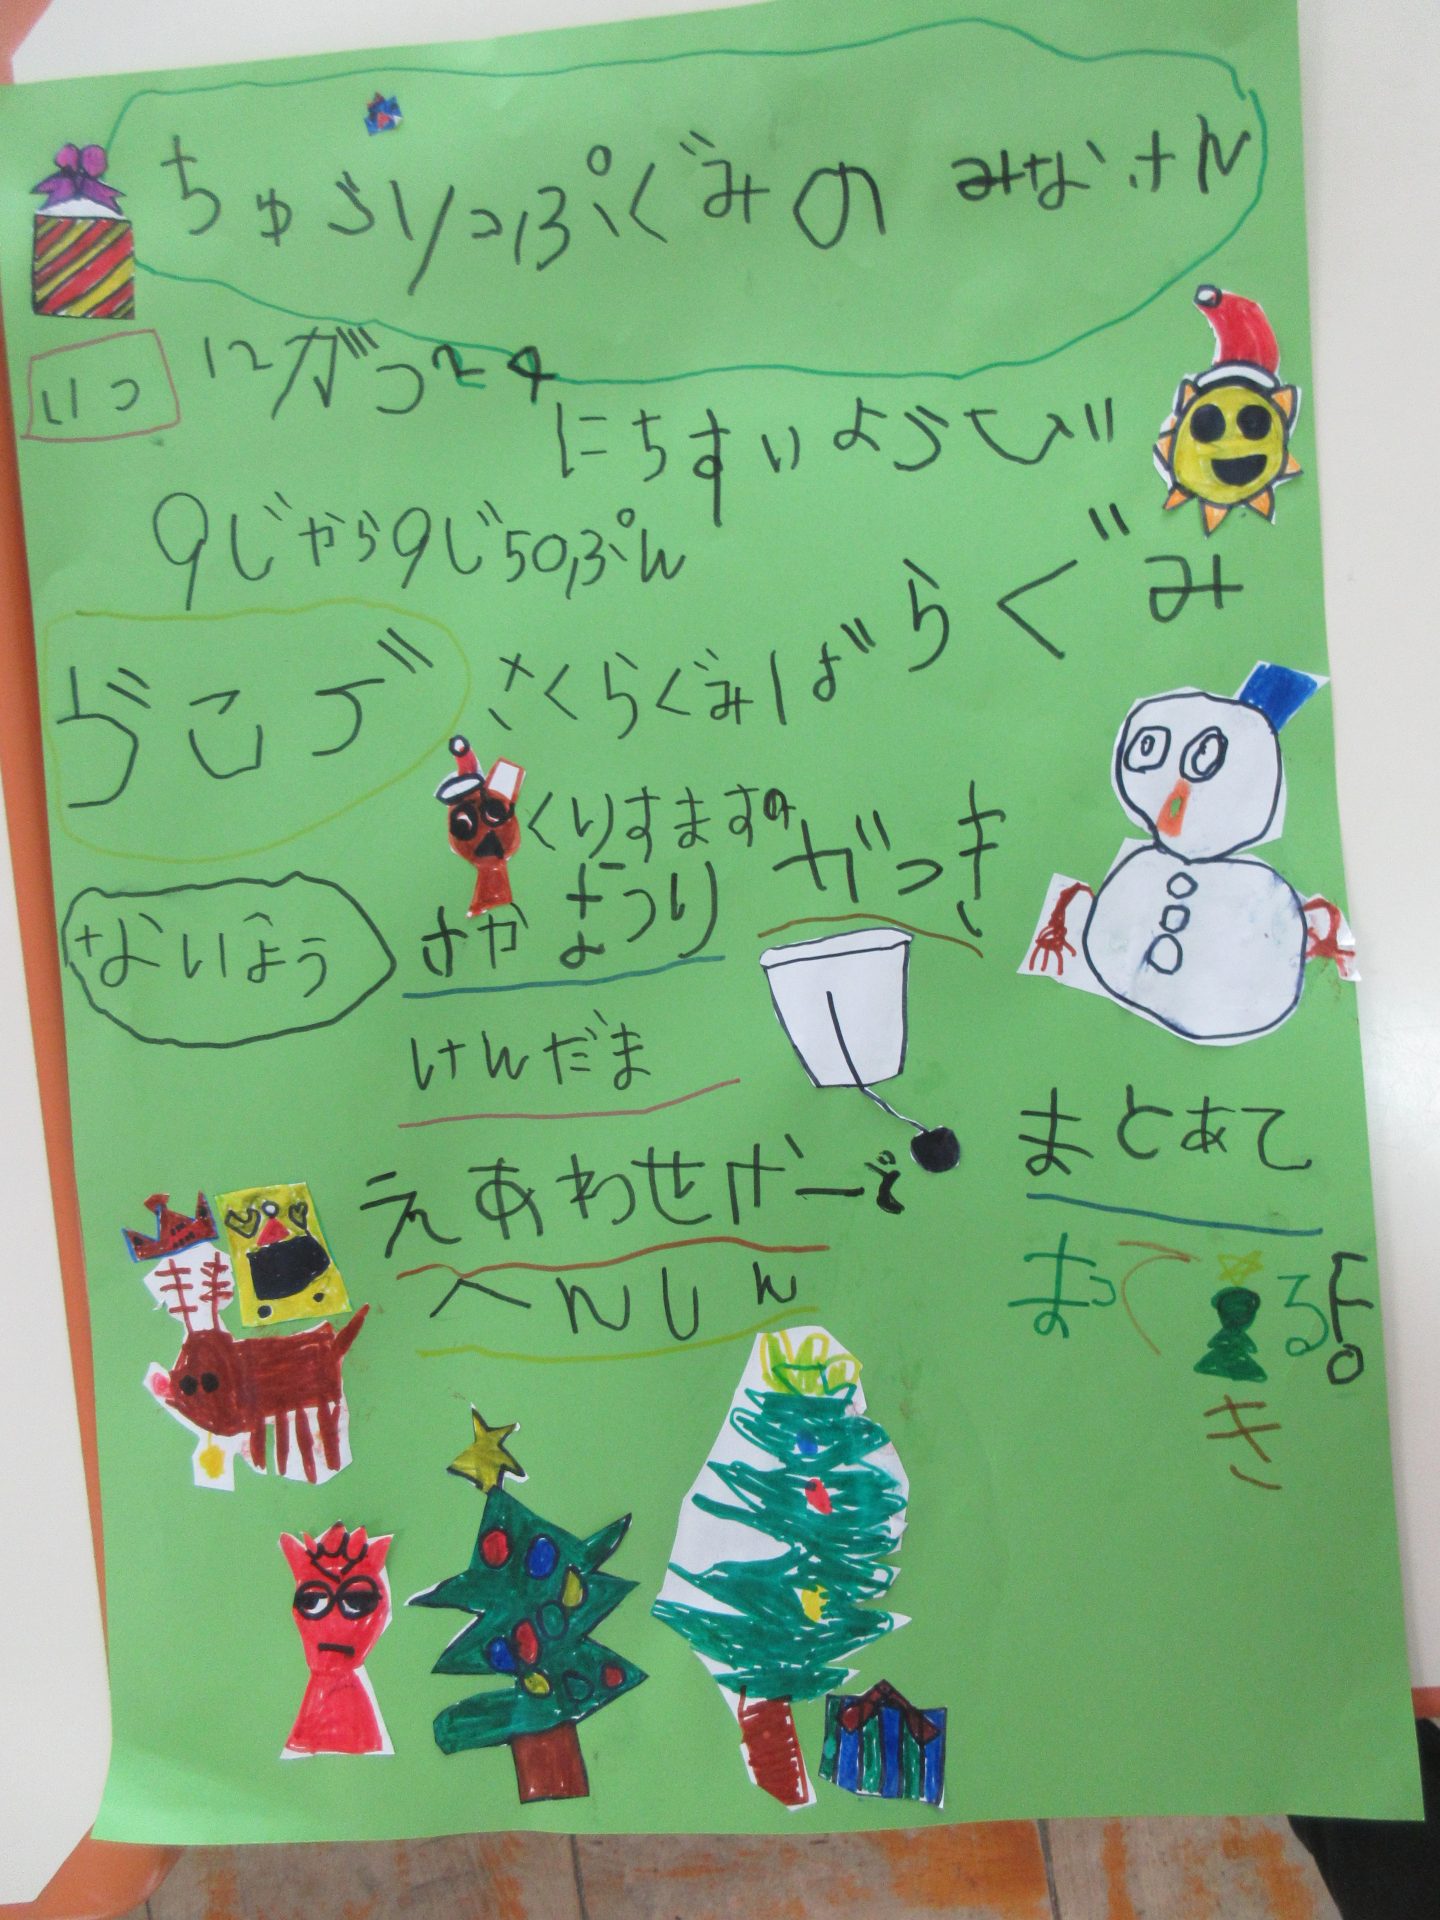 ちゅうりっぷぐみの みなさん
いつ 12がつ24
にちすいようび
9じから9じ50ぷん
さくらぐみ ばらぐみ
ないよう
くりすますの
さかなつり
がっき
けんだま
まとあて
えあわせかーど
へんしん
まってるよ
き